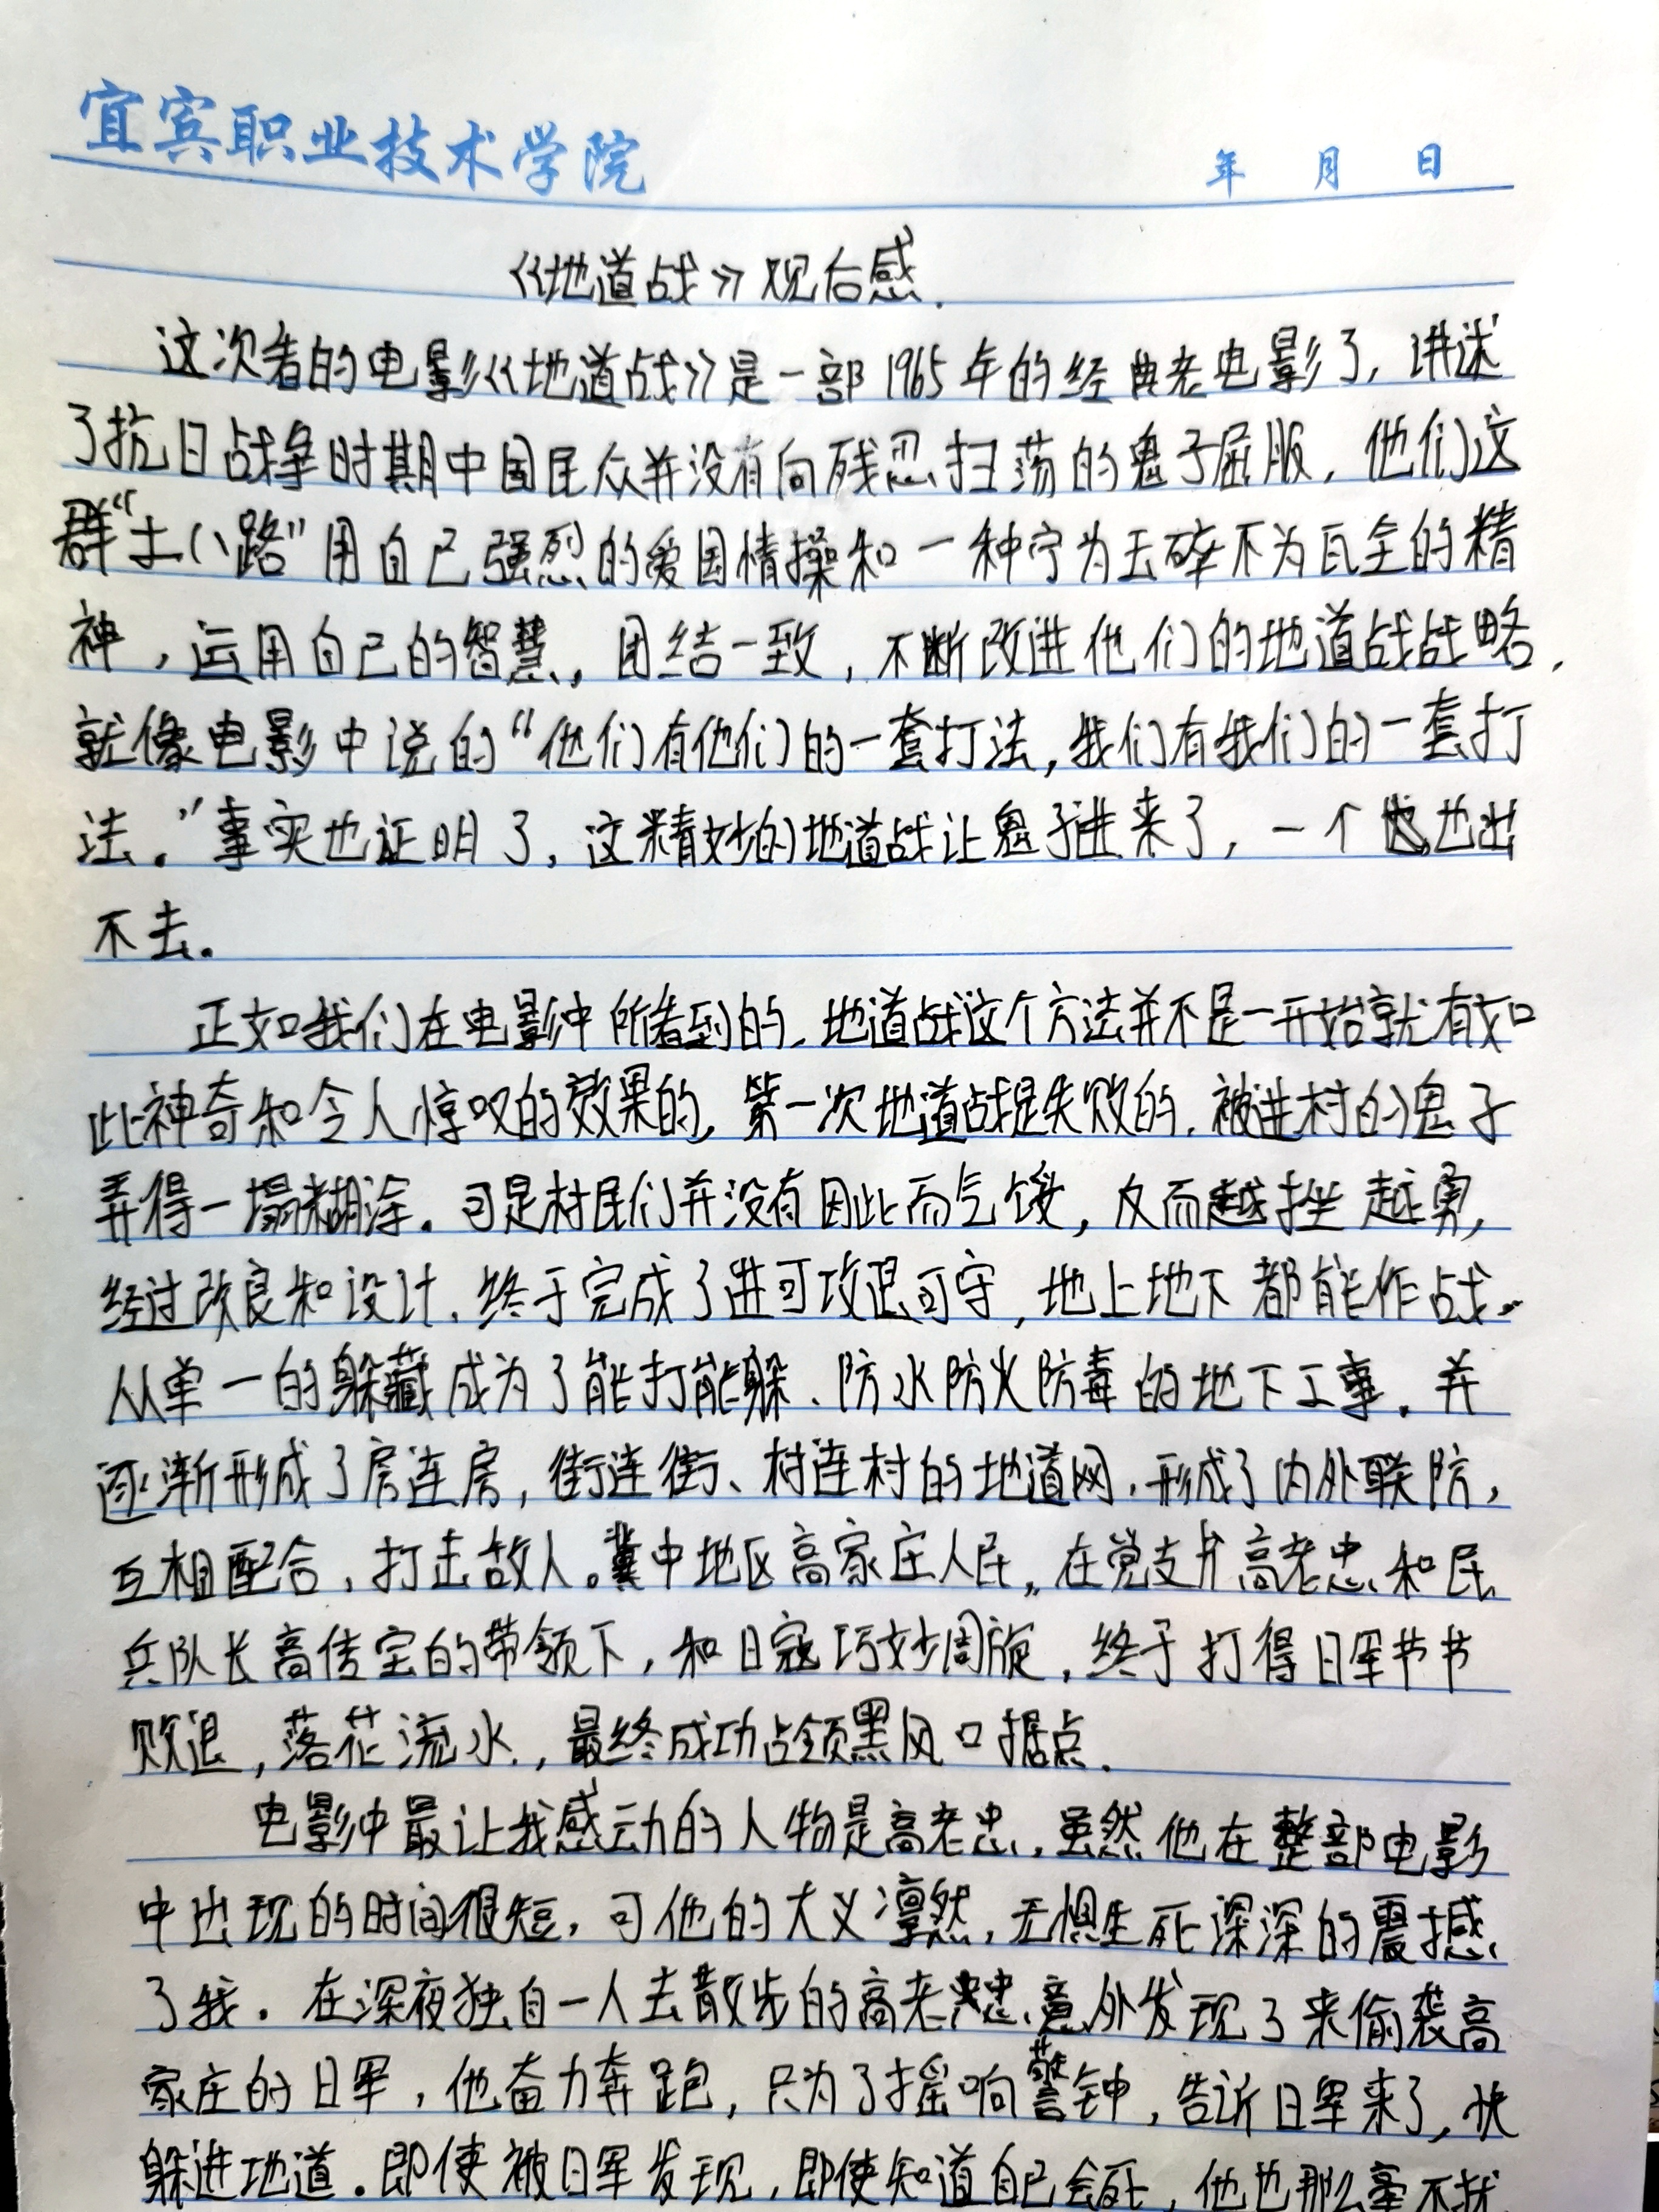 宜宾职业技术学院
年 月 日
《地道战》观后感.
这次看的电影《地道战》是一部1965年的经典老电影了,讲述
了抗日战争时期中国民众并没有向残忍扫荡的鬼子屈服,他们这
群“土八路”用自己强烈的爱国情操和一种宁为玉碎不为瓦全的精
神,运用自己的智慧,团结一致,不断改进他们的地道战战略,
就像电影中说的“他们有他们的一套打法,我们有我们的一套打
法。”事实也证明了,这精妙的地道战让鬼子进来了,一个也出
不去。
正如我们在电影中所看到的,地道战这个方法并不是一开始就有如
此神奇和令人惊叹的效果的,第一次地道战是失败的,被进村的鬼子
弄得一塌糊涂。可是村民们并没有因此而气馁,反而越挫越勇,
经过改良和设计,终于完成了进可攻退可守,地上地下都能作战。
从单一的躲藏成为了能打能躲、防水防火防毒的地下工事。并
逐渐形成了房连房,街连街、村连村的地道网,形成了内外联防,
互相配合,打击敌人。冀中地区高家庄人民,在党支书高老忠和民
兵队长高传宝的带领下,和日寇巧妙周旋,终于打得日军节节
败退,落花流水,最终成功占领黑风口据点.
电影中最让我感动的人物是高老忠,虽然他在整部电影
中出现的时间很短,可他的大义凛然,无惧生死深深的震撼
了我。在深夜独自一人去散步的高老忠,意外发现了来偷袭高
家庄的日军,他奋力奔跑,只为了摇响警钟,告诉日军来了,快
躲进地道。即使被日军发现,即使知道自己会死,他也那么毫不犹